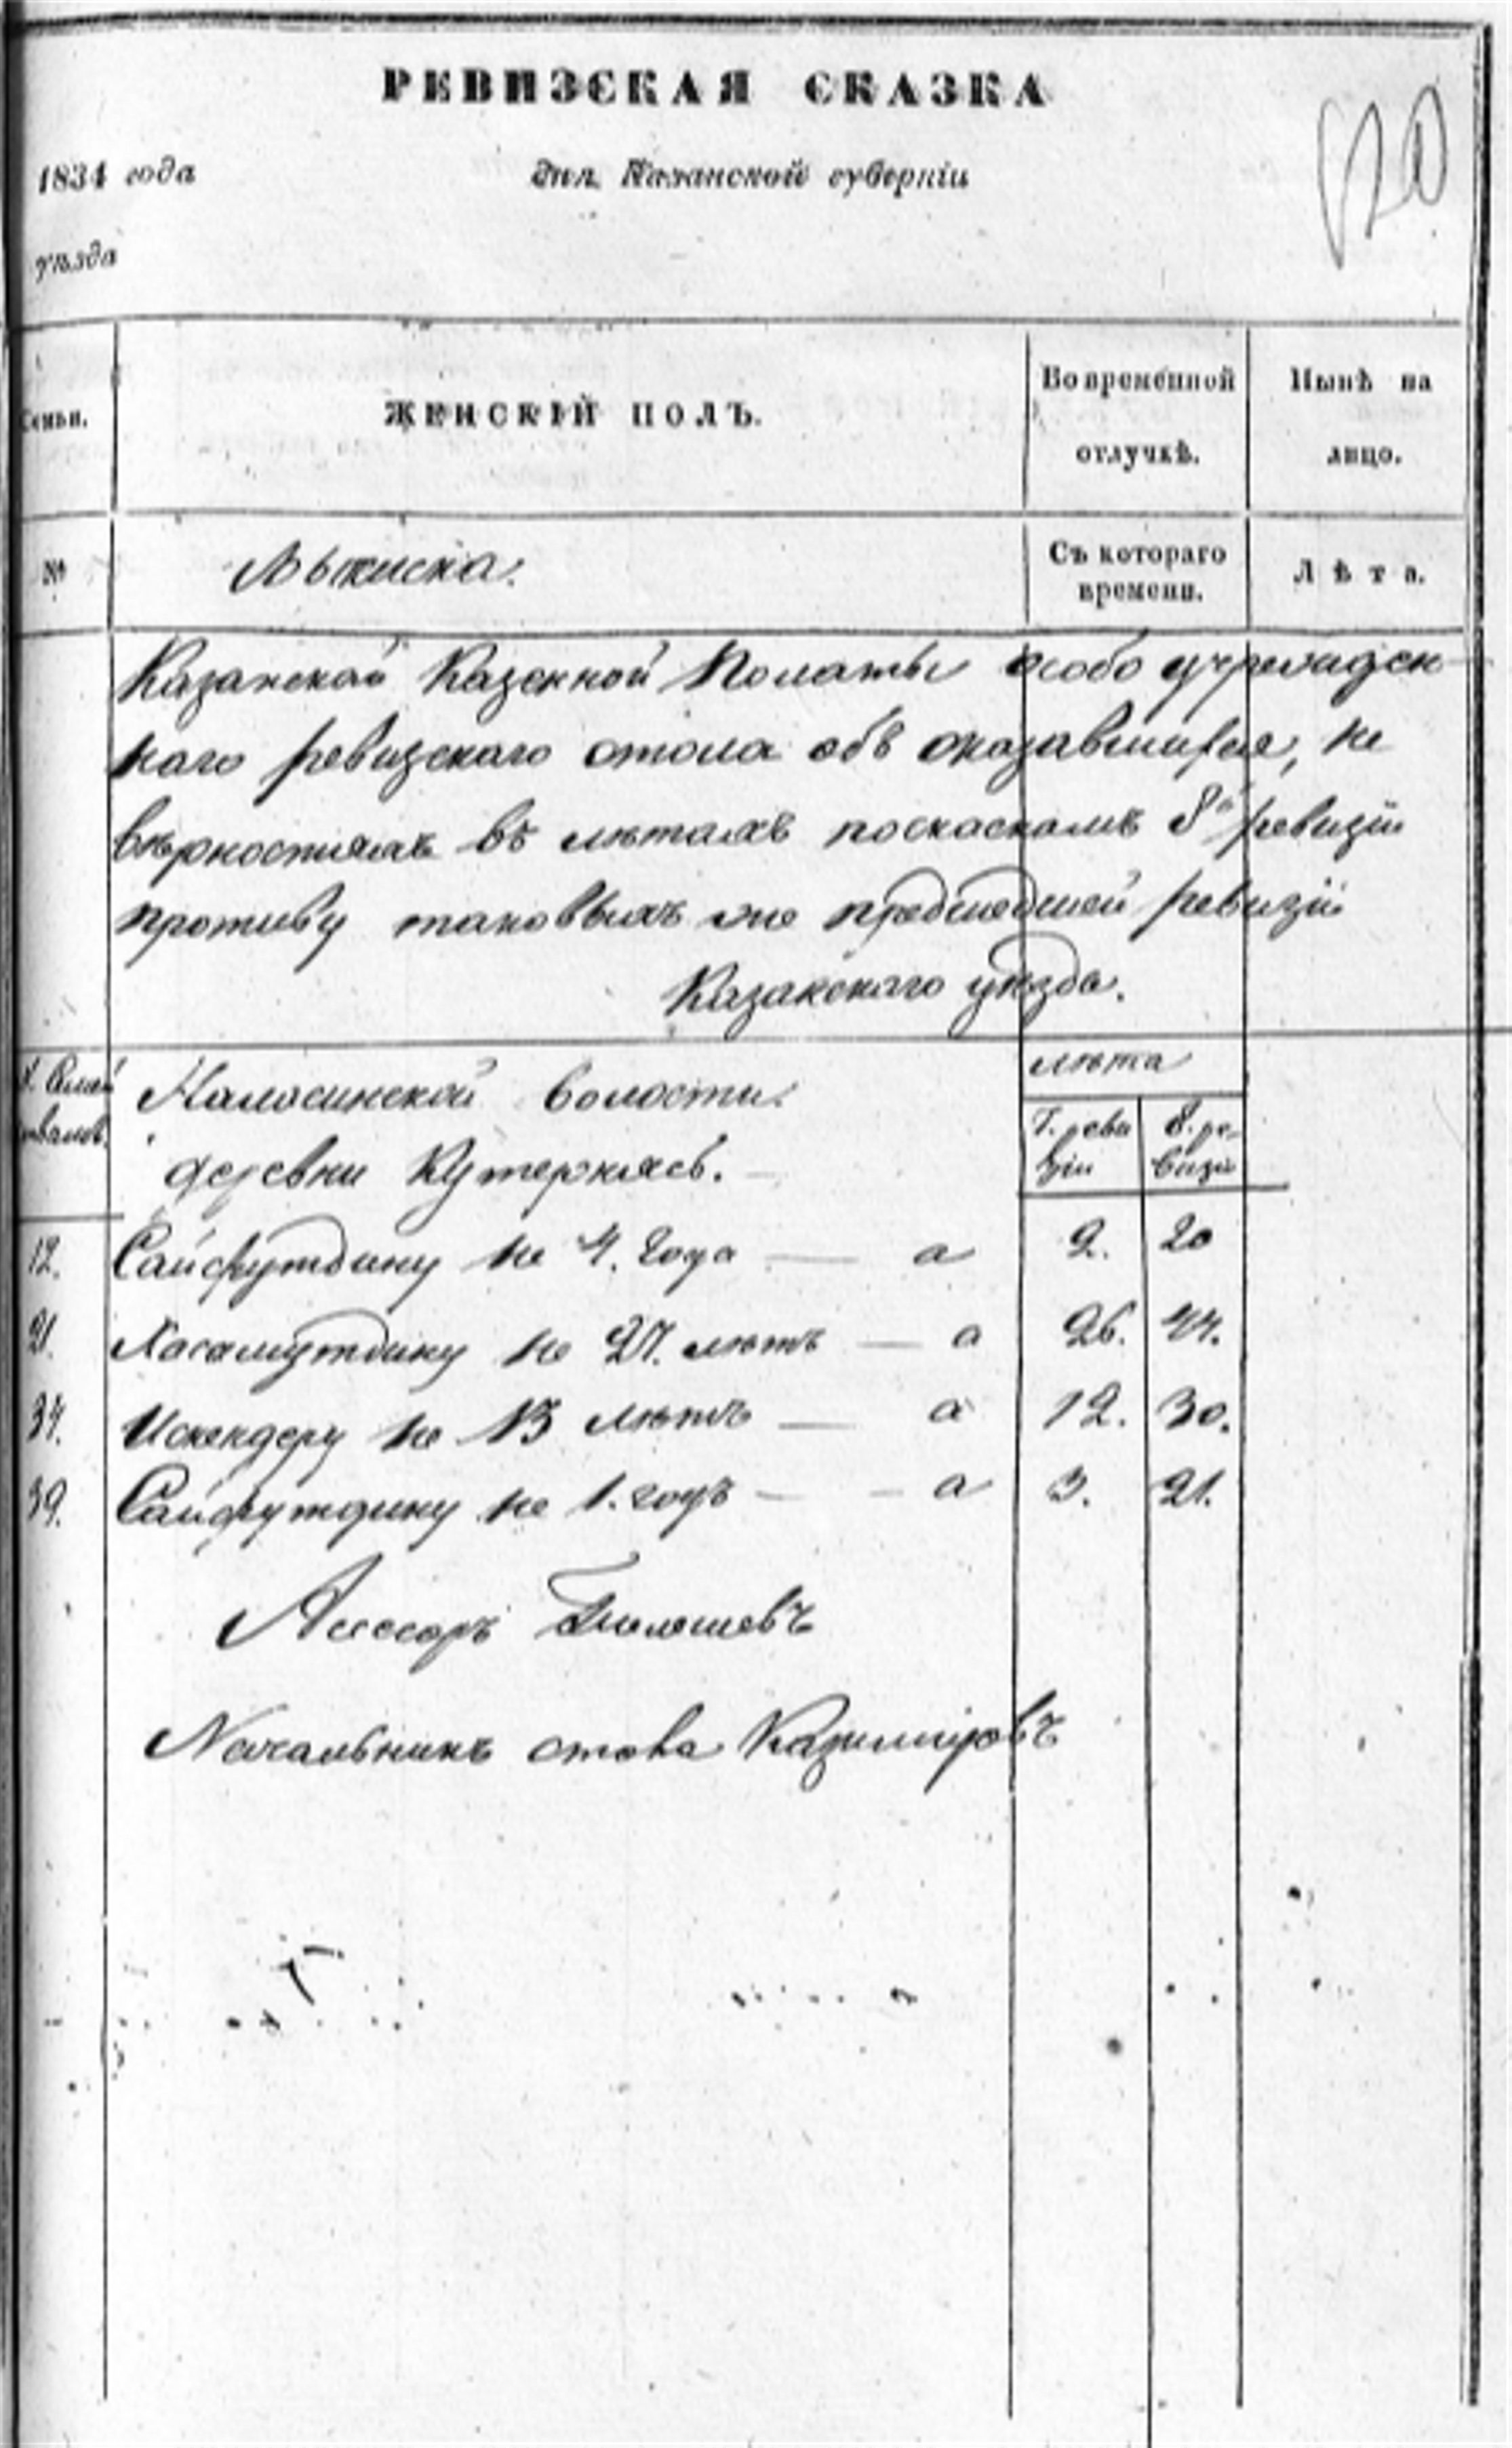 РЕВИЗСКАЯ СКАЗКА
1834 года
дня Казанской губерніи
уѣзда
120
Семьи.
ЖЕНСКІЙ ПОЛЪ.
Во временной отлучкѣ.
Нынѣ на лицо.
№
Выписка.
Съ котораго времени.
Лѣта.
Казанской Казенной Полаты особо учрежден
наго ревизскаго стола объ оказавшихся, не
вѣрностяхъ въ лѣтахъ поскаскамъ 8й ревизіи
противу таковыхъ же предшедшей ревизіи
Казанскаго уѣзда.
лѣта
волости.
деревни Кутернясь.
7. реви зіи
8. ре- визіи
12. Сайфутдину не 4. года — а 2. 20
21. Хасамутдину не 27. лѣтъ — а 26. 44.
34. Искендеру не 13 лѣтъ — а 12. 30.
39. Сайфутдину не 1. годъ — — а 3. 21.
Асесоръ
Начальникъ стола Казимировъ